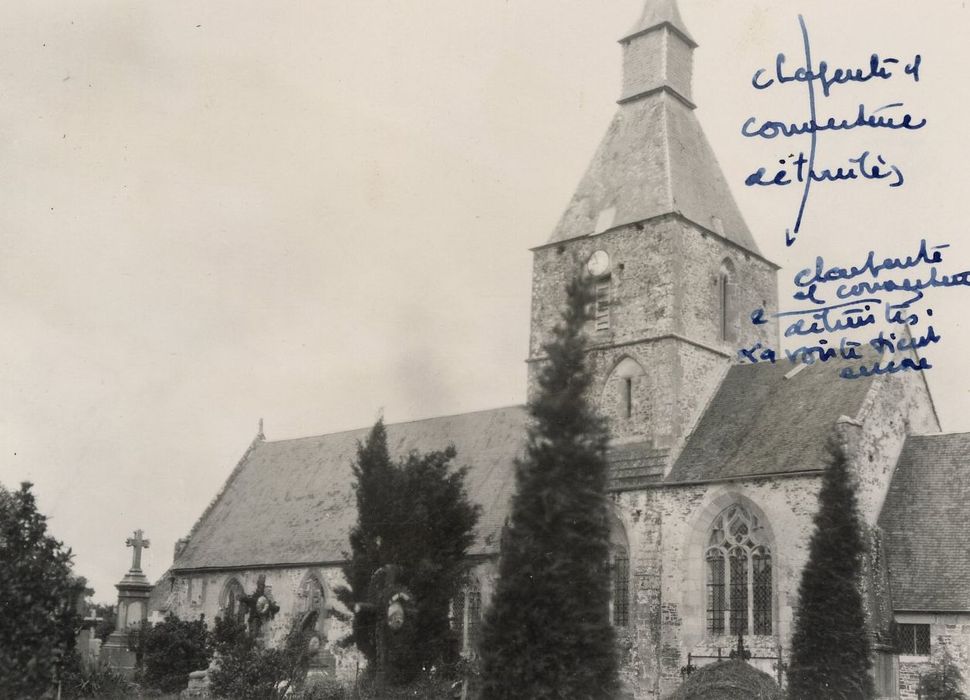 charpente et
couverture
détruites
charpente
et couverture
détruites.
La voûte tient
encore